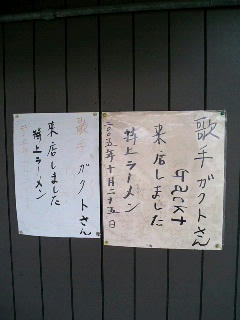 歌手 ガクトさん
gackt
来店しました
特上ラーメン
二〇〇五年十月二十五日
歌手 ガクトさん
来店しました
特上ラーメン